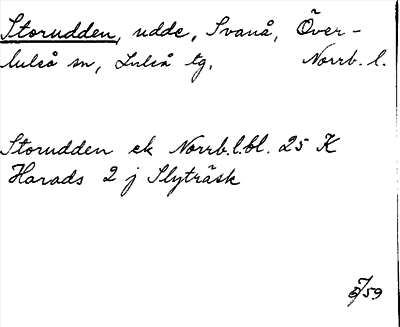 Storudden, udde, Svanå, Över-
luleå sn, Luleå tg. Norrb. l.
Storudden ek Norrb.l.bl. 25 K
Harads 2 j Slyträsk